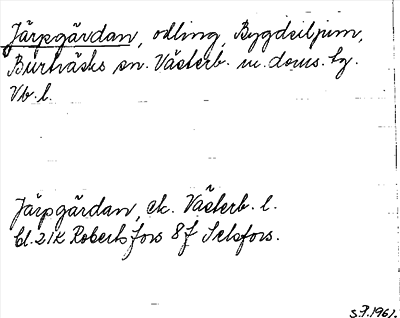 Järpgärdan, odling, Bygdsiljum,
Burträsks sn. Västerb. m. doms. bg.
Vb. l.
Järpgärdan, ek. Västerb. l.
bl. 21K Robertsfors 8f Selsfors.
S.F. 1961.